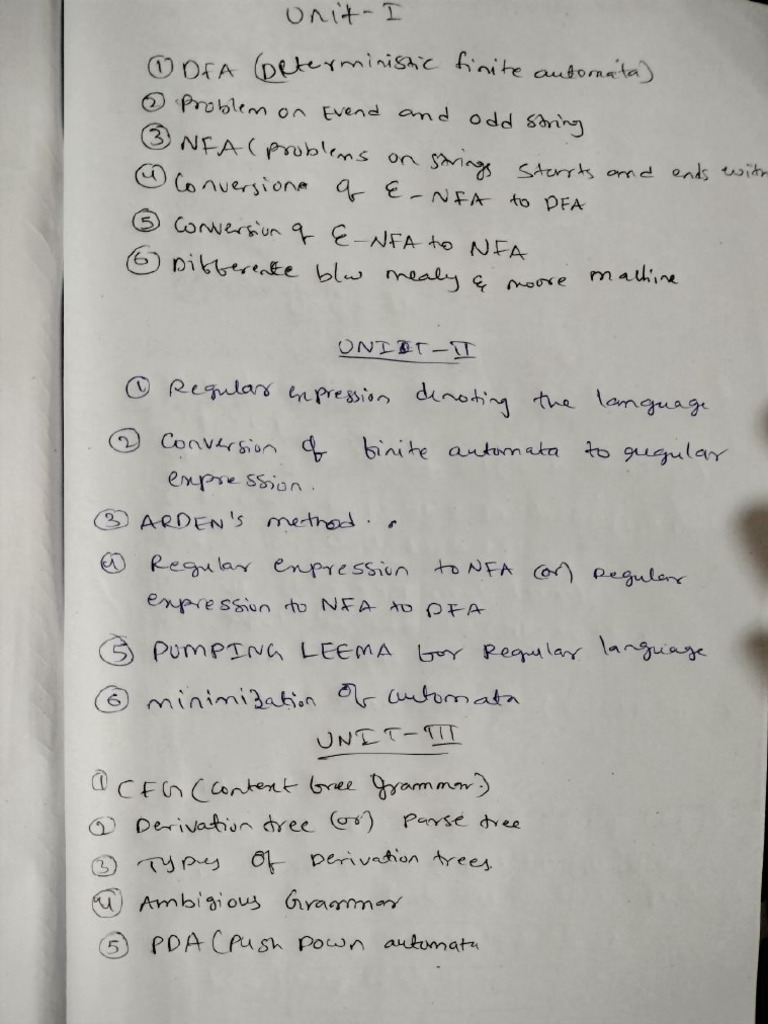 Unit-I
① DFA (Deterministic finite automata)
② Problem on Evend and odd string
③ NFA (problems on strings starts and ends with
④ Conversione of ε-NFA to DFA
⑤ Conversion of ε-NFA to NFA
⑥ Difference b/w mealy & moore machine
UNIT-II
① Regular expression denoting the language
② Conversion of finite automata to regular
expression.
③ ARDEN's method.
④ Regular expression to NFA (or) Regular
expression to NFA to DFA
⑤ PUMPING LEEMA for Regular language
⑥ minimization of automata
UNIT-III
① CFG (context free grammar.)
② Derivation tree (or) Parse tree
③ Types of Derivation trees.
④ Ambigious Grammar
⑤ PDA (Push Down automata